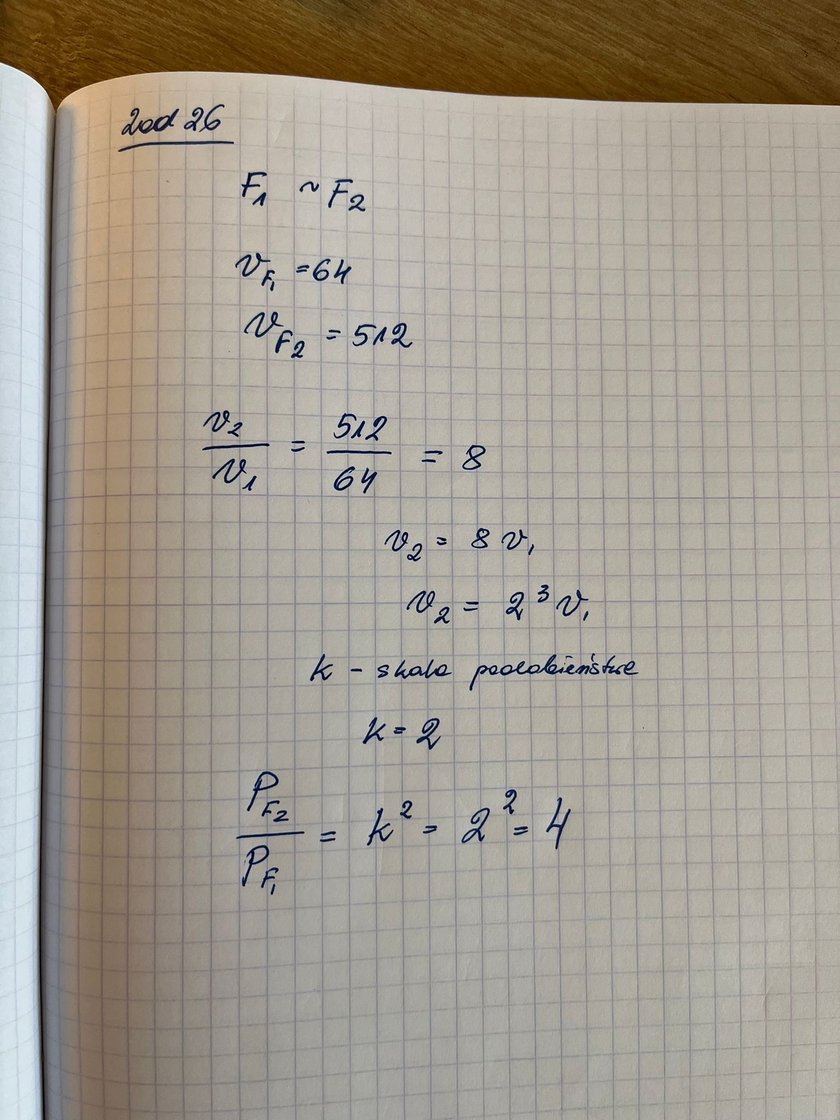 Zad 26
F₁ ~ F₂
V_F₁ = 64
V_F₂ = 512
V₂/V₁ = 512/64 = 8
V₂ = 8 V₁
V₂ = 2³ V₁
k - skala podobieństwa
k = 2
P_F₂/P_F₁ = k² = 2² = 4